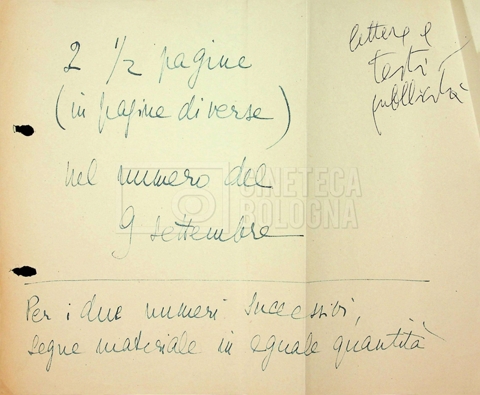 2 1/2 pagine
(in pagine diverse)
nel numero del
9 settembre
lettere e
testi
pubblicità
Per i due numeri successivi,
segue materiale in eguale quantità
CINETECA
BOLOGNA